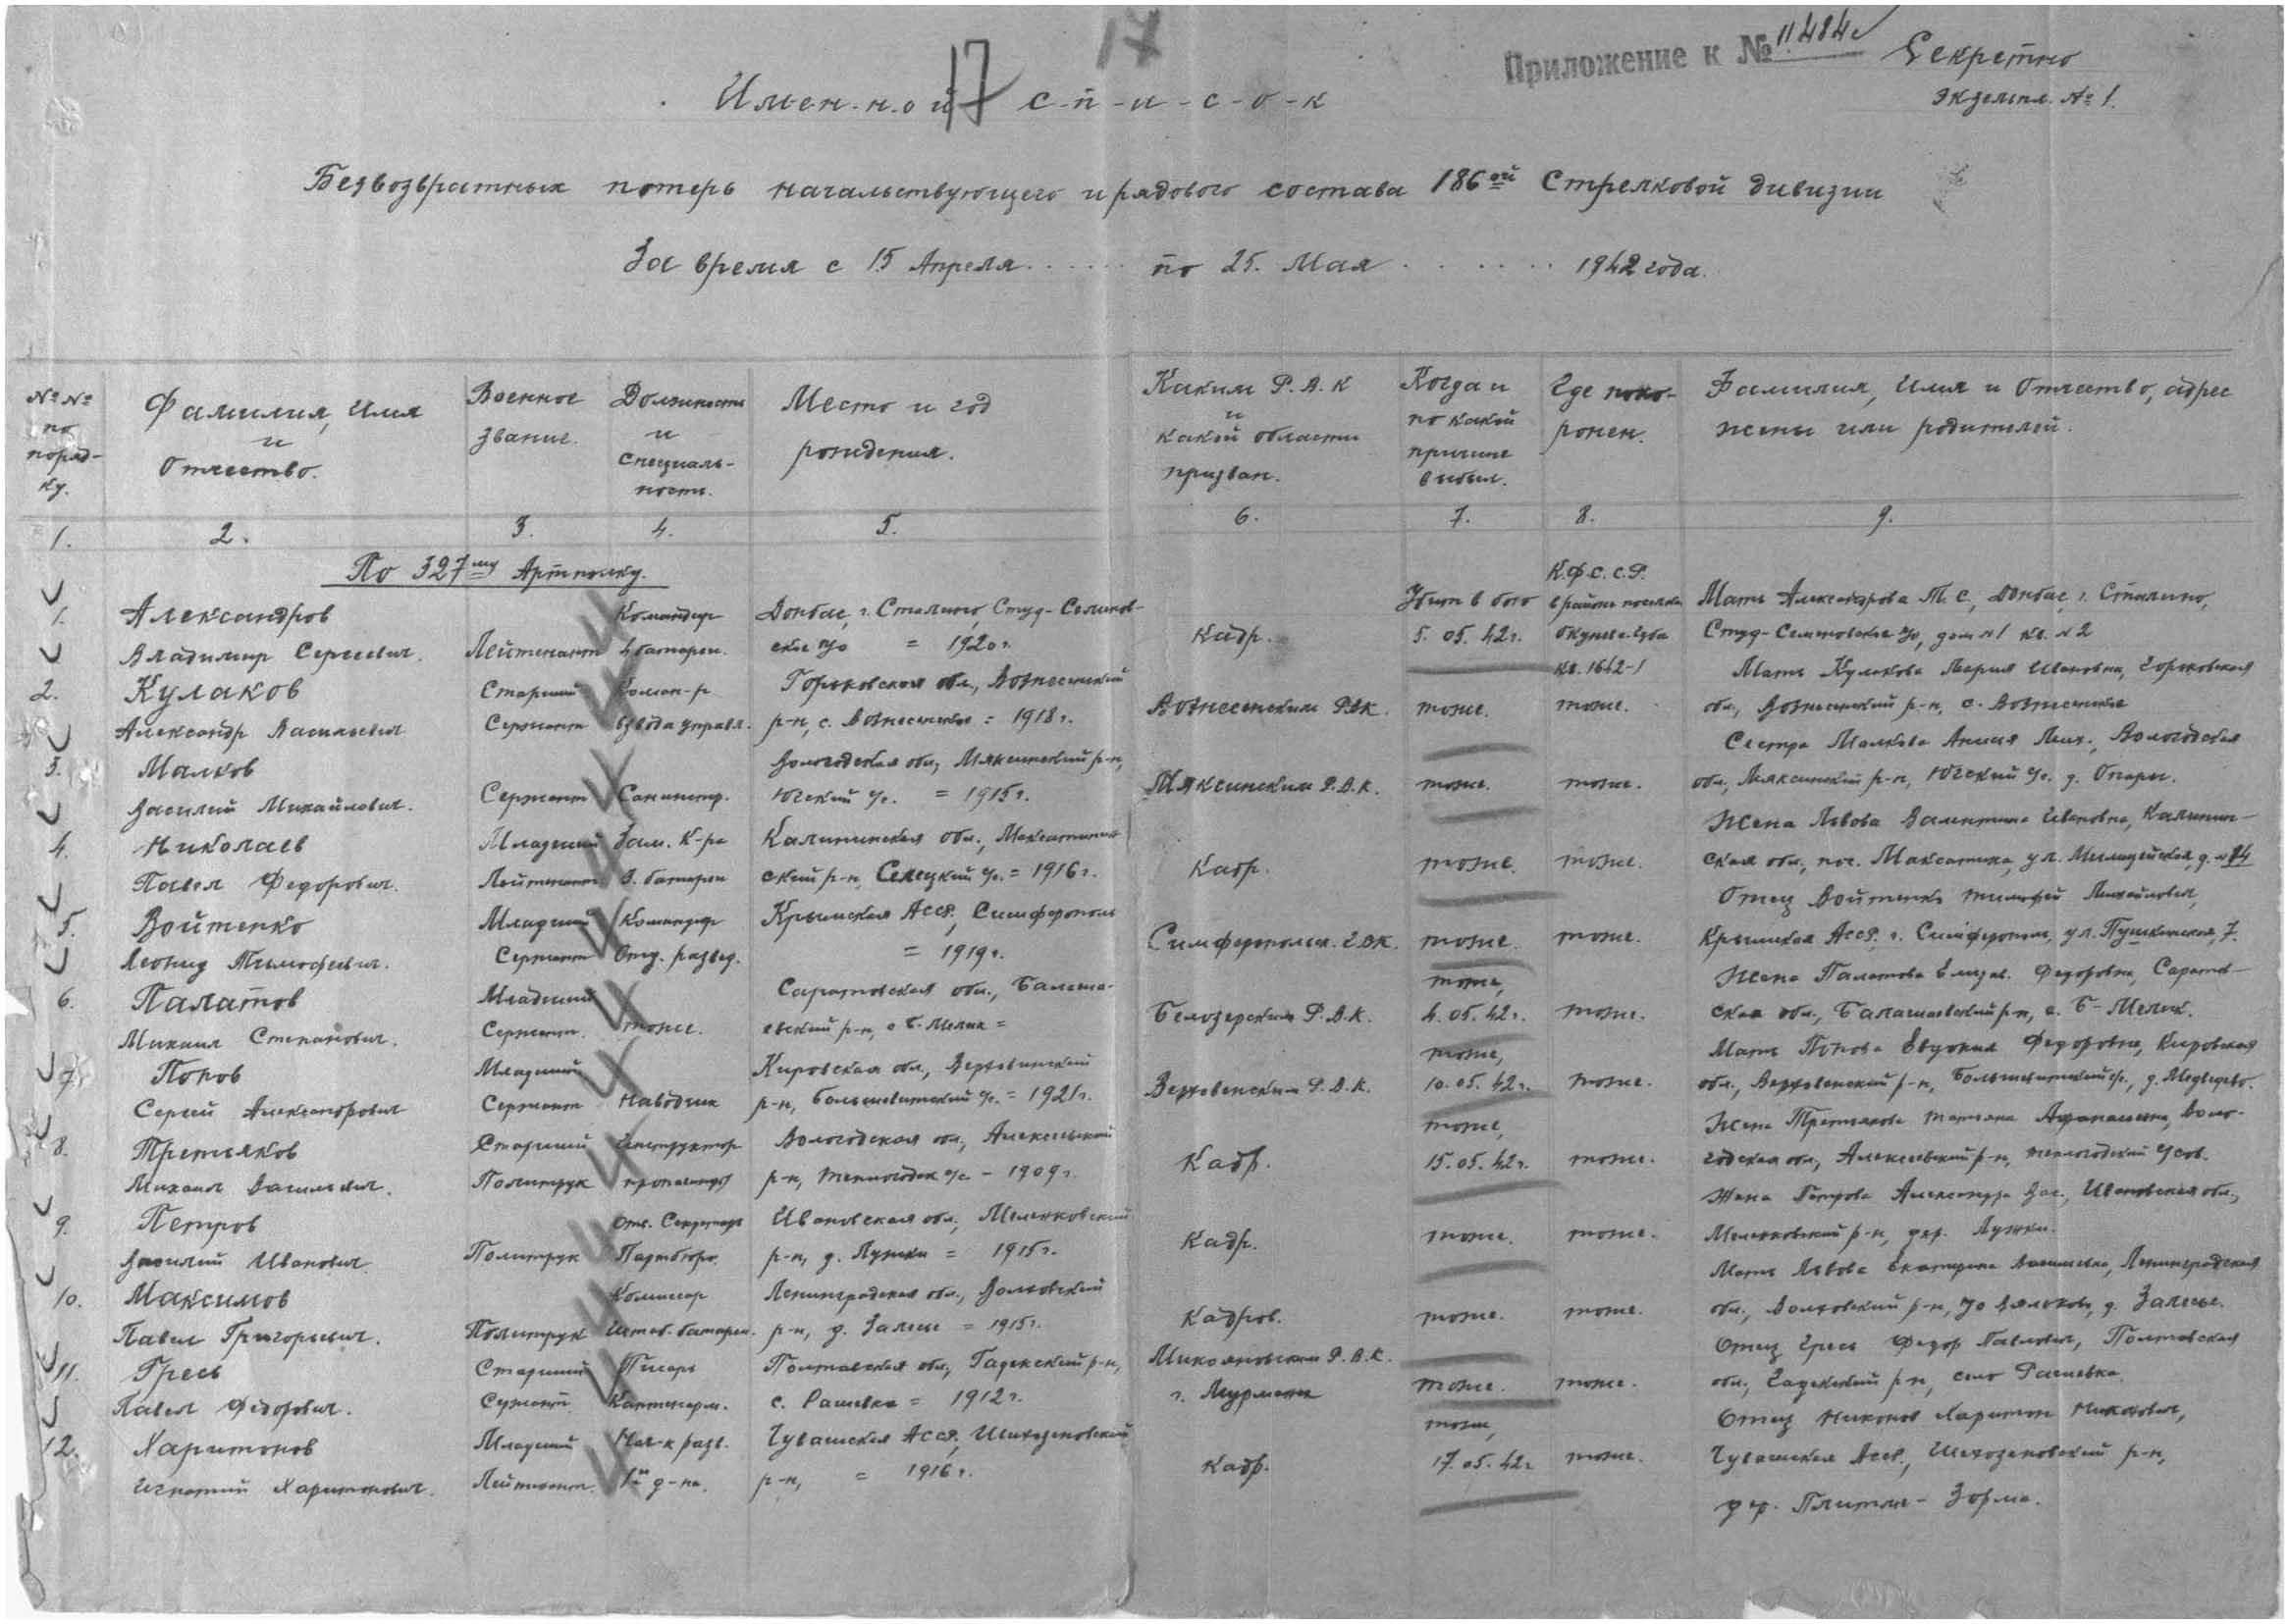 17
Приложение к № 11484с
Секретно
Экземпл. № 1.
Имен-н-о й 17 с-п-и-с-о-к
Безвозвратных потерь начальствующего и рядового состава 186ой Стрелковой дивизии
За время с 15 Апреля . . . . . по 25. Мая . . . . . . 1942 года.
№ №
по
поряд-
ку.
Фамилия, Имя
и
Отчество.
Военное
звание.
Должность
и
специаль-
ность.
Место и год
рождения.
Каким Р.В.К
и
какой области
призван.
Когда и
по какой
причине
выбыл.
Где похо-
ронен.
Фамилия, Имя и Отчество, адрес
жены или родителей.
1. 2. 3. 4. 5. 6. 7. 8. 9.
По 327му Артполку.
К.Ф.С.С.Р.
1. Александров Командир Донбас, г. Сталино, Студ-Селинов- Убит в бою в районе поселка Мать Александрова Т.С., Донбас, г. Сталино,
Владимир Сергеевич. Лейтенант 4 батареи. = 1920 г. Кадр. 5.05.42г. Окунева-Губа дом №1 кв. №2
Кв. 1642-1 Мать Кулакова Мария Ивановна, Горьковская
2. Кулаков Старший Коман-р Горьковская обл., Вознесенский
Александр Васильевич Сержант взвода управл. р-н, с. Вознесенское = 1918 г. Вознесенским РВК. тоже. тоже. обл., Вознесенский р-н, с. Вознесенское
Сестра Малкова Мих., Вологодская
3. Малков Вологодская обл., Мяксинский р-н,
Василий Михайлович. Сержант Санинстр. Югский с/с. = 1915 г. Мяксинским Р.В.К. тоже. тоже. обл., Мяксинский р-н, Югский с/с. д.
Жена Львова Валентина Ивановна, Калинин-
4. Николаев Младший Зам. К-ра Калининская обл., Максатихин-
Павел Федорович. Лейтенант 3. батареи ский р-н, Селецкий с/с. = 1916 г. Кадр. тоже. тоже. ская обл., пос. Максатиха, ул. Милицейская, д. №14
Отец Войтенко Тимофей Михайлович,
5. Войтенко Младший Командир Крымская Асср, Симферополь
Леонид Тимофеевич. Сержант Отд. развед. = 1919 г. Симферопольск. Г.ВК. тоже. тоже. Крымская Асср, г. Симферополь, ул. Пушкинская, 7.
Жена Палатова Елизав. Федоровна, Саратов-
6. Палатов Младший Саратовская обл., Балаша- тоже,
Михаил Степанович. Сержант. тоже. евский р-н, с Б-Мелик = Белозерским Р.В.К. 4.05.42г. тоже. ская обл., Балашовский р-н, с. Б-Мелик.
Мать Попова Евдокия Федоровна, Кировская
7. Попов Младший Кировская обл., Верховинский тоже,
Сергей Александрович Сержант Наводчик р-н, = 1921 г. Верховенским Р.В.К. 10.05.42г. тоже. обл., Верховенский р-н, д. Медведево.
Жена Третьякова Татьяна Афанасьевна, Воло-
8. Третьяков Старший Инструктор Вологодская обл., Алексеевский тоже,
Михаил Васильевич. Политрук пропаганды р-н, - 1909 г. Кадр. 15.05.42г. тоже. годская обл., Алексеевский р-н,
Жена Петрова Александра Вас., Ивановская обл.,
9. Петров Отв. Секретарь Ивановская обл., Меленковский
Василий Иванович. Политрук Партбюро. р-н, д. Лужки = 1915 г. Кадр. тоже. тоже. Меленковский р-н, дер. Лужки.
Мать Львова Екатерина Васильевна, Ленинградская
10. Максимов Комиссар Ленинградская обл., Волховский
Павел Григорьевич. Политрук Штаб. батареи. р-н, д. Залесье = 1915 г. Кадров. тоже. тоже. обл., Волховский р-н, д. Залесье.
Отец Гресь Федор Павлович, Полтавская
11. Гресь Старший Писарь Полтавская обл., Гадячский р-н, Микояновским Р.В.К.
Павел Федорович. Сержант Канцеляри. с. Рашевка = 1912 г. г. Мурманск тоже. тоже. обл., Гадячский р-н, село Рашевка.
Отец Никонов Харитон Никонович,
12. Харитонов Младший Нач-к разв. Чувашская Асср, Шихозановский тоже,
Игнатий Харитонович. Лейтенант. 1й д-на. р-н, = 1916 г. Кадр. 17.05.42г. тоже. Чувашская Асср, Шихозановский р-н,
дер.